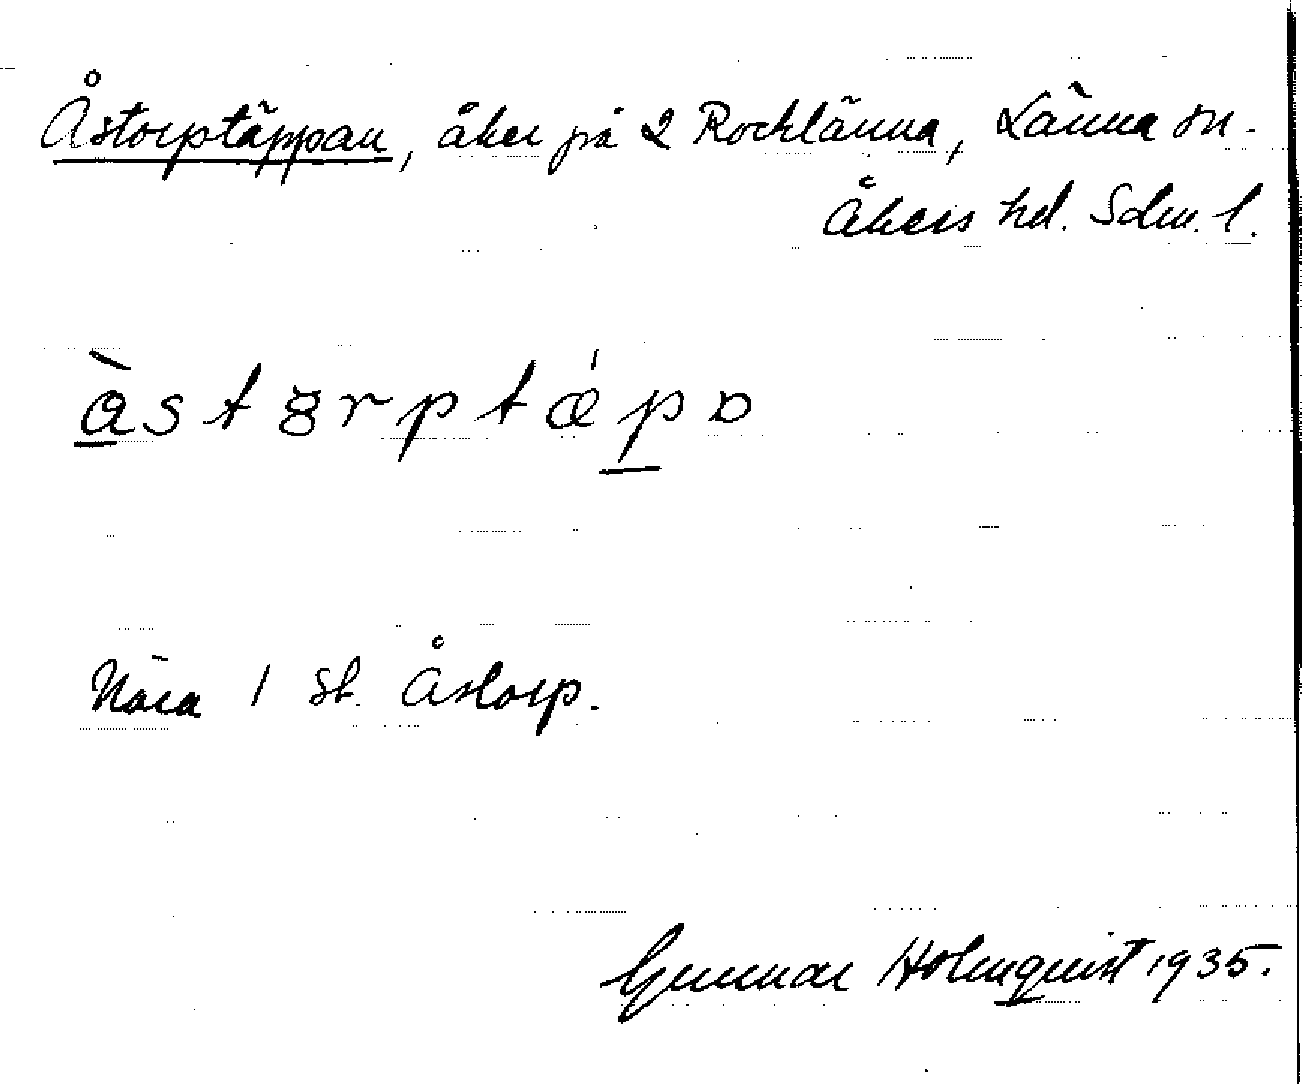 Åstorptäppan, åker på 2 Rocklänna, Länna sn.
Åkers hd. Sdm. l.
Nära 1 st. Åstorp.
Gunnar Holmquist 1935.